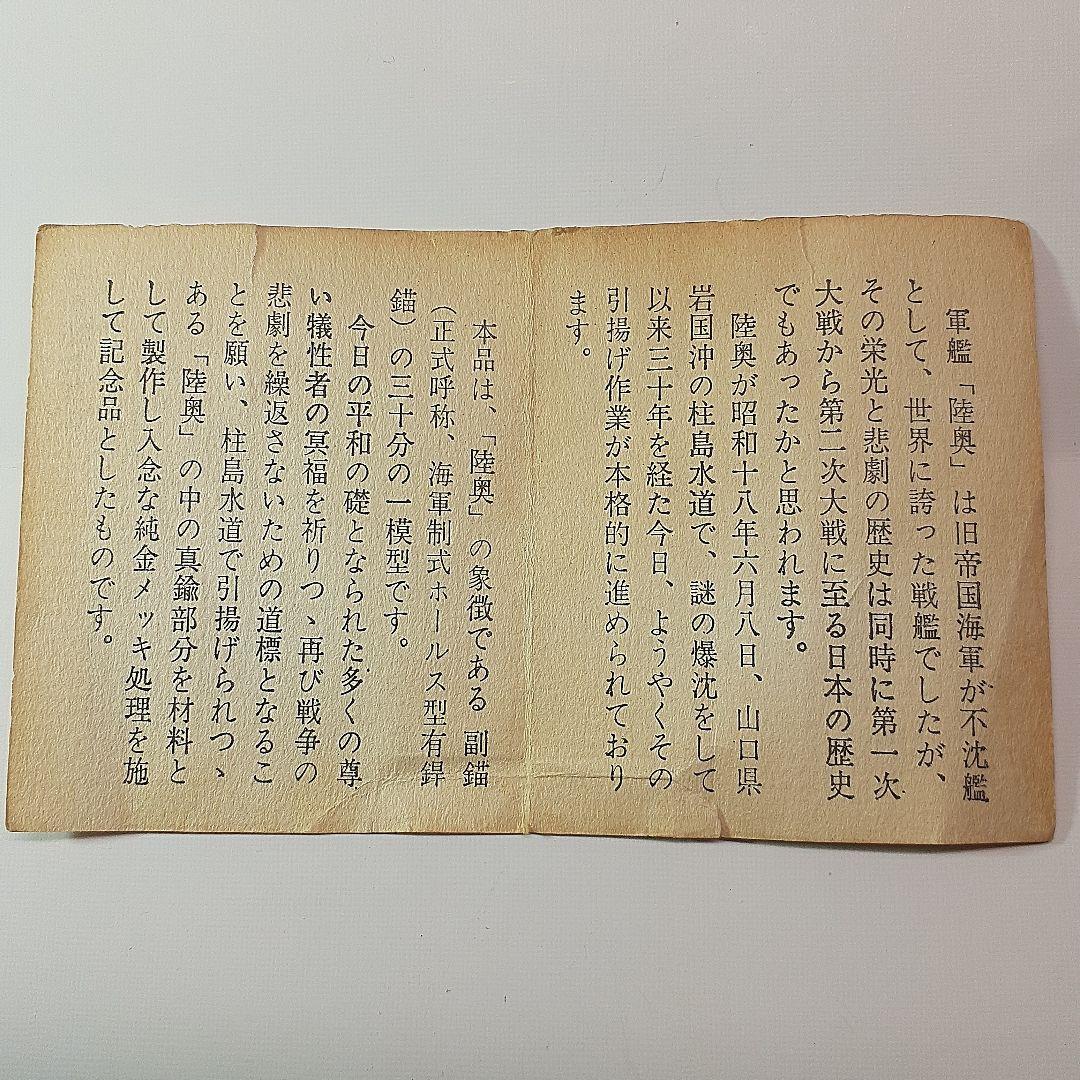 軍艦「陸奥」は旧帝国海軍が不沈艦
として、世界に誇った戦艦でしたが、
その栄光と悲劇の歴史は同時に第一次
大戦から第二次大戦に至る日本の歴史
でもあったかと思われます。
陸奥が昭和十八年六月八日、山口県
岩国沖の柱島水道で、謎の爆沈をして
以来三十年を経た今日、ようやくその
引揚げ作業が本格的に進められており
ます。
本品は、「陸奥」の象徴である副錨
（正式呼称、海軍制式ホールス型有銲
錨）の三十分の一模型です。
今日の平和の礎となられた多くの尊
い犠性者の冥福を祈りつゝ再び戦争の
悲劇を繰返さないための道標となるこ
とを願い、柱島水道で引揚げられつゝ
ある「陸奥」の中の真鍮部分を材料と
して製作し入念な純金メッキ処理を施
して記念品としたものです。